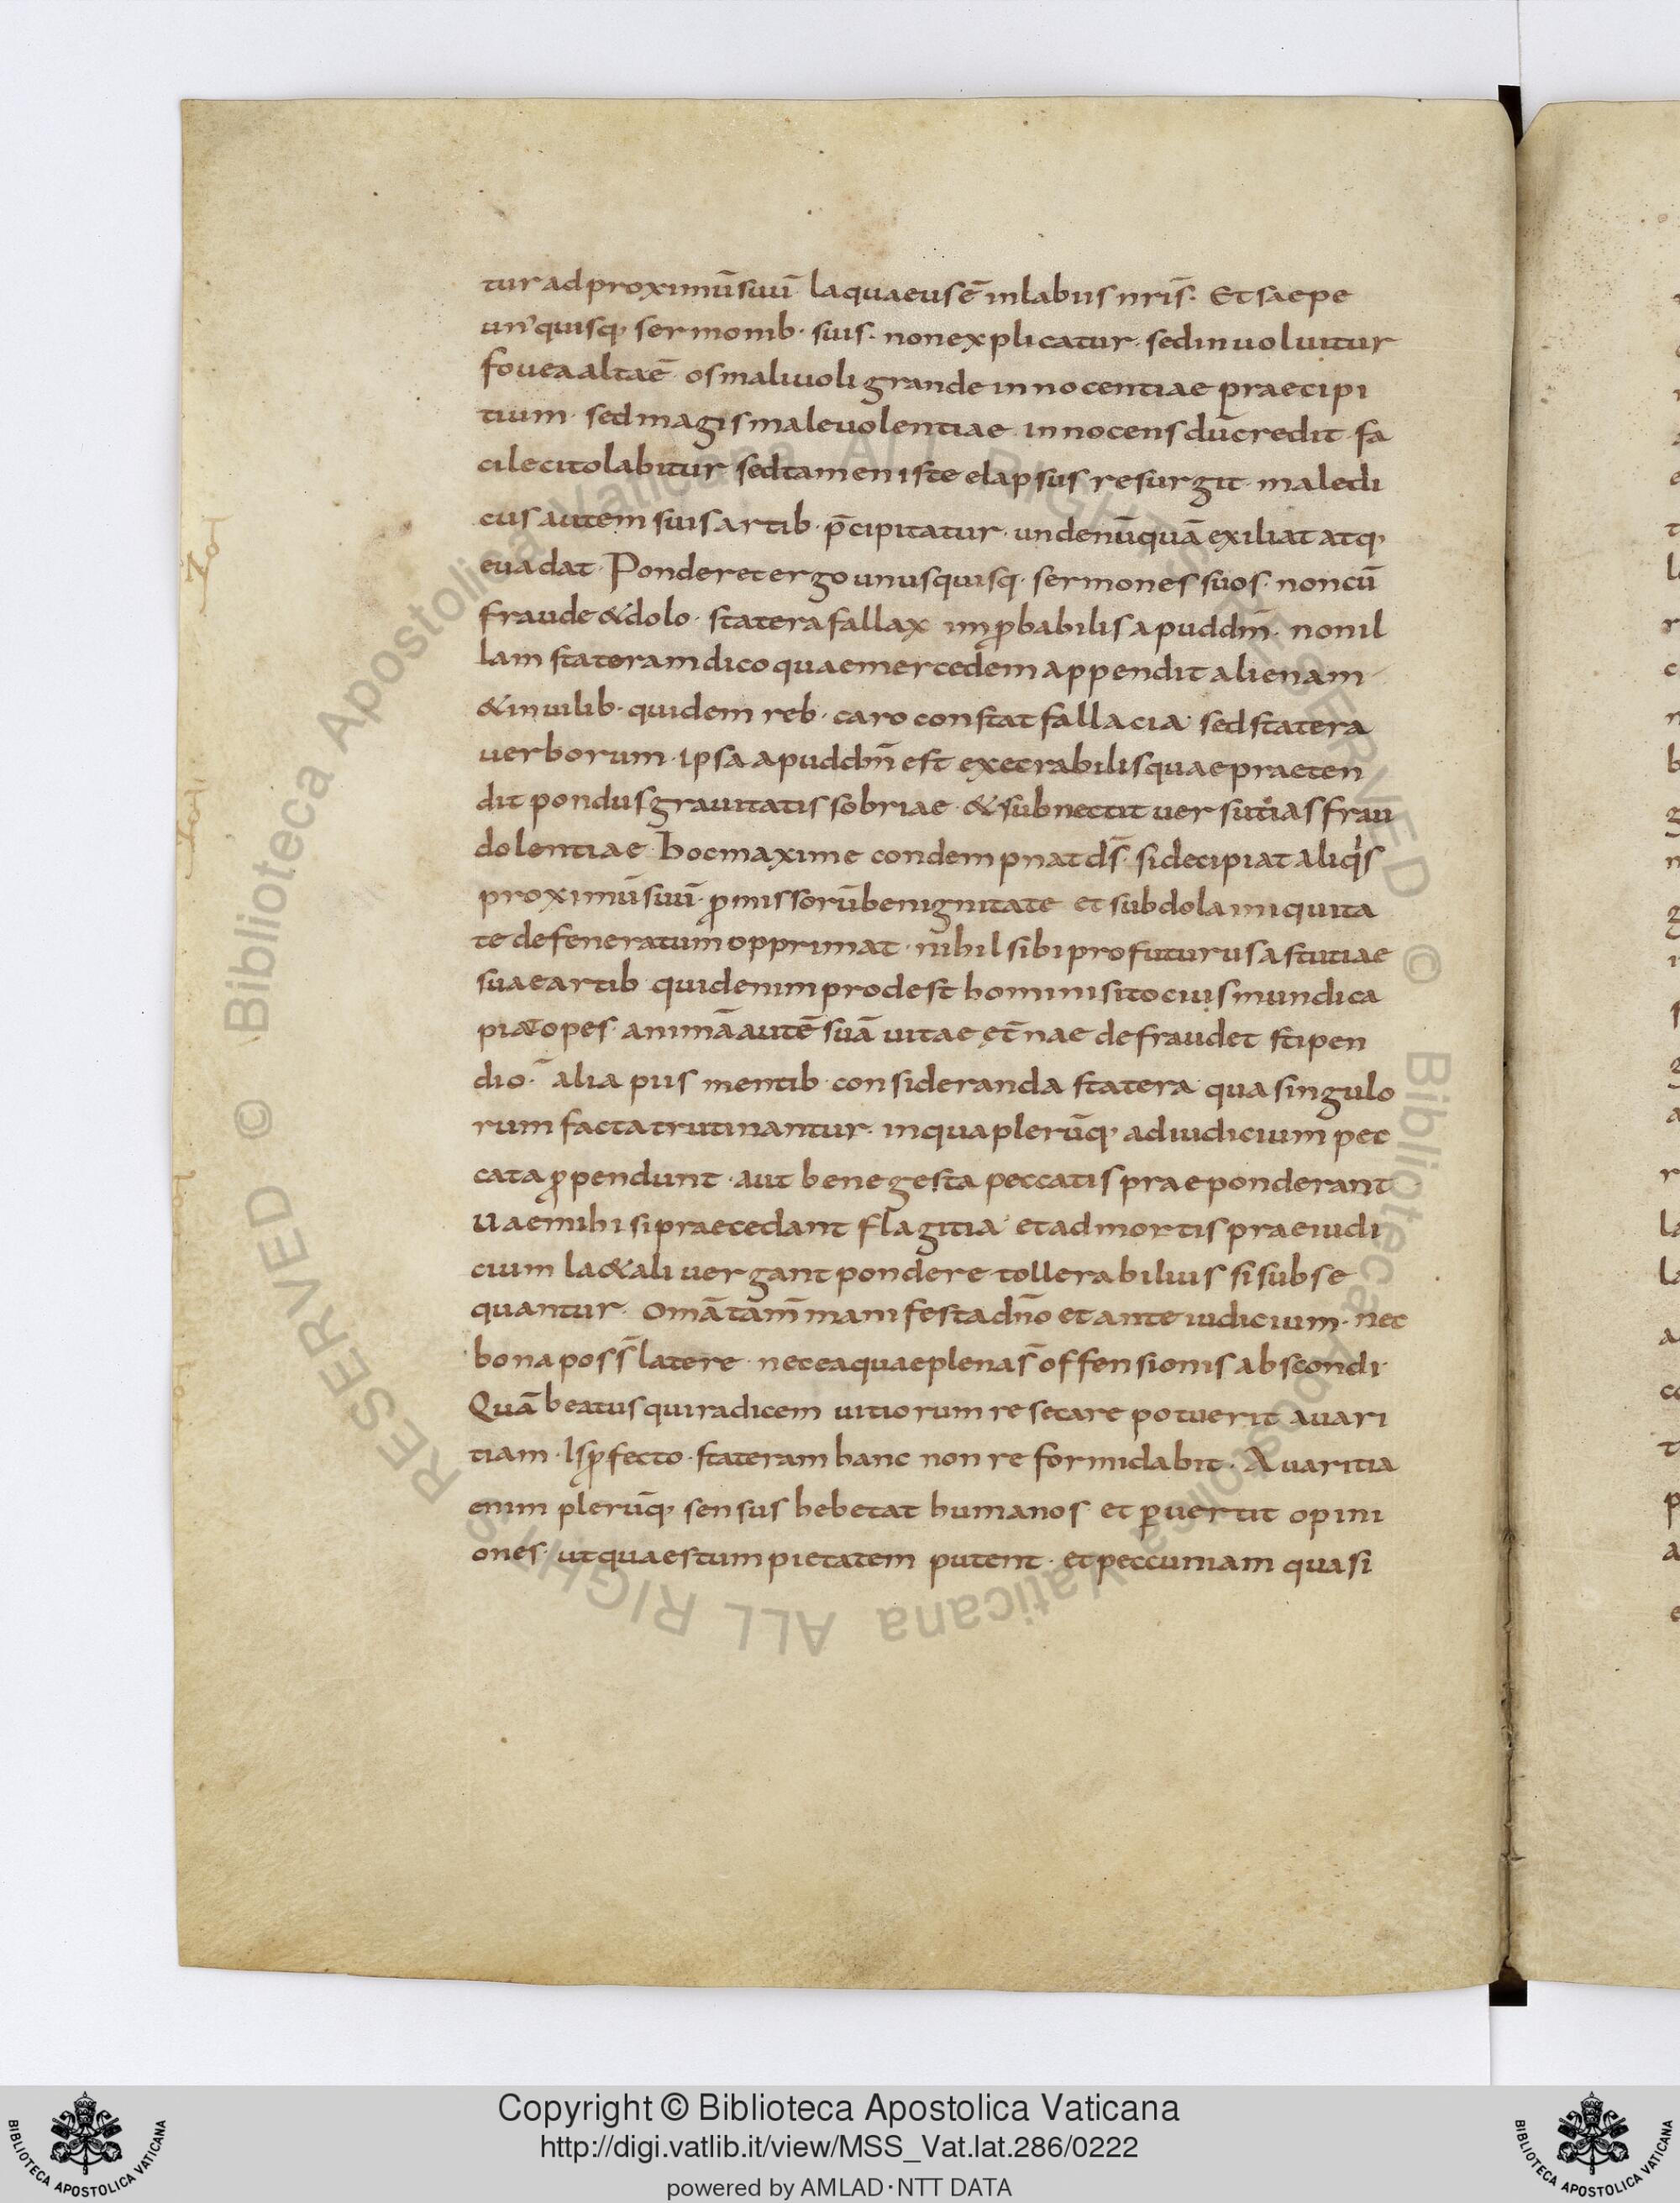 tur ad proximū suū laquaeus ē in labiis nr̄is. Et saepe
un'quisq; sermonib· suis· non explicatur· sed inuoluitur
fouea alta ē os maliuoli grande innocentiae praecipi
tium· sed magis maleuolentiae innocens dū credit fa
cile cito labitur sed tamen iste elapsus resurgit· maledi
cus autem suis artib· p̄cipitatur· unde nūquā exiliat atq;
euadat· Ponderet ergo unusquisq; sermones suos· non cū
fraude & dolo· statera fallax inp̱babilis apud dn̄m· non il
lam stateram dico quae mercedem appendit alienam
& in uilib· quidem reb· caro constat fallacia· sed statera
uerborum· ipsa apud dn̄m est execrabilis quae praeten
dit pondus grauitatis sobriae· & subnectit uersutias frau
dolentiae· hoc maxime condempnat ds̄· si decipiat aliqs
proximū suū· p̱missorū benignitate et subdola iniquita
te defeneratum opprimat· nihil sibi profuturus astutiae
suae artib· quid enim prodest homini si tocius mundi ca
piat opes· animā autē suā uitae ęt̄nae defraudet stipen
dio· ÷ alia piis mentib· consideranda statera· qua singulo
rum facta trutinantur· in qua plerūq; ad iudicium pec
cata p̱pendunt· aut bene gesta peccatis praeponderant
Uae mihi si praecedant flagitia· et ad mortis praeiudi
cium la&ali uergant pondere tollerabilius si subse
quantur· Omā tam̄ manifesta dn̄o et ante iudicium· nec
bona poss̄ latere· nec ea quae plena s̄ offensionis abscondi·
Quā beatus qui radicem uitiorum resecare potuerit auari
tiam· Is p̱fecto· stateram hanc non reformidabit· Auaritia
enim plerūq; sensus hebetat humanos et p̱uertit opini
ones· ut quaestum pietatem putent· et peccuniam quasi
Copyright © Biblioteca Apostolica Vaticana
http://digi.vatlib.it/view/MSS_Vat.lat.286/0222
powered by AMLAD·NTT DATA
BIBLIOTECA APOSTOLICA VATICANA
BIBLIOTECA APOSTOLICA VATICANA
© Biblioteca Apostolica Vaticana ALL RIGHTS RESERVED
© Biblioteca Apostolica Vaticana ALL RIGHTS RESERVED